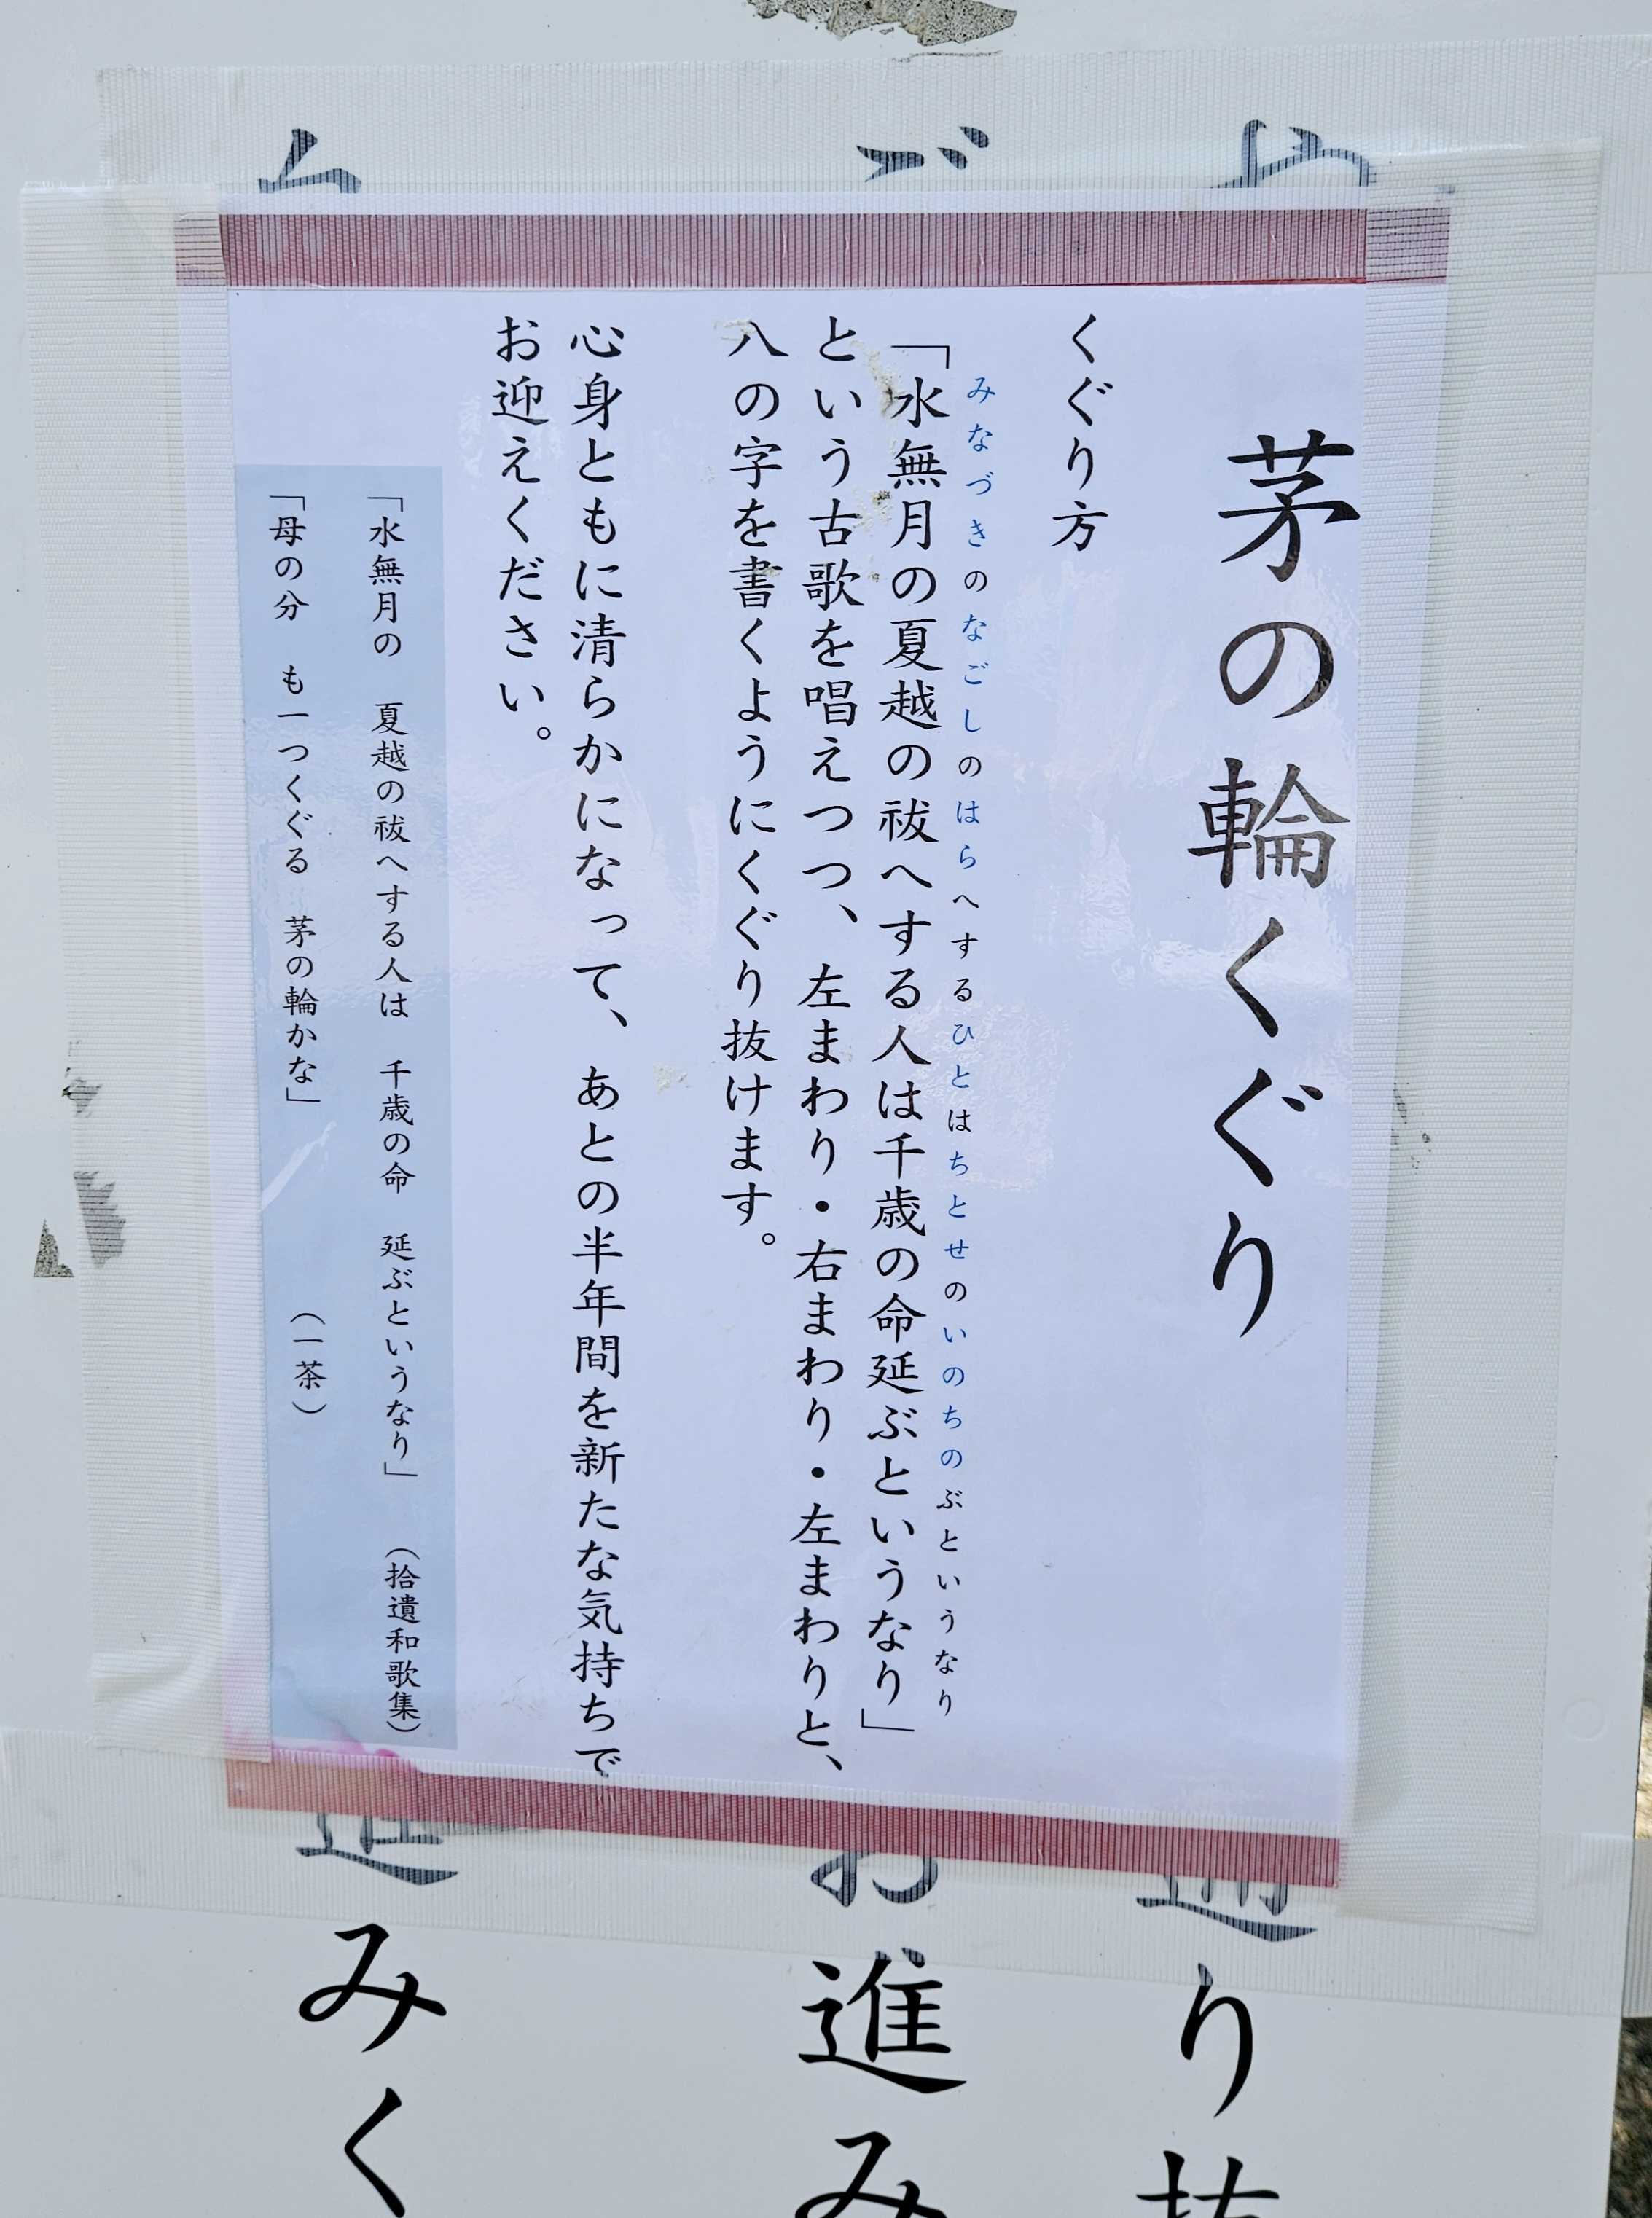 茅の輪くぐり
くぐり方
みなづきのなごしのはらへするひとはちとせのいのちのぶというなり
「水無月の夏越の祓へする人は千歳の命延ぶというなり」
という古歌を唱えつつ、左まわり・右まわり・左まわりと、
八の字を書くようにくぐり抜けます。
心身ともに清らかになって、あとの半年間を新たな気持ちで
お迎えください。
「水無月の 夏越の祓へする人は 千歳の命 延ぶというなり」 (拾遺和歌集)
「母の分 も一つくぐる 茅の輪かな」 (一茶)
通り抜
ご お進み
進みく